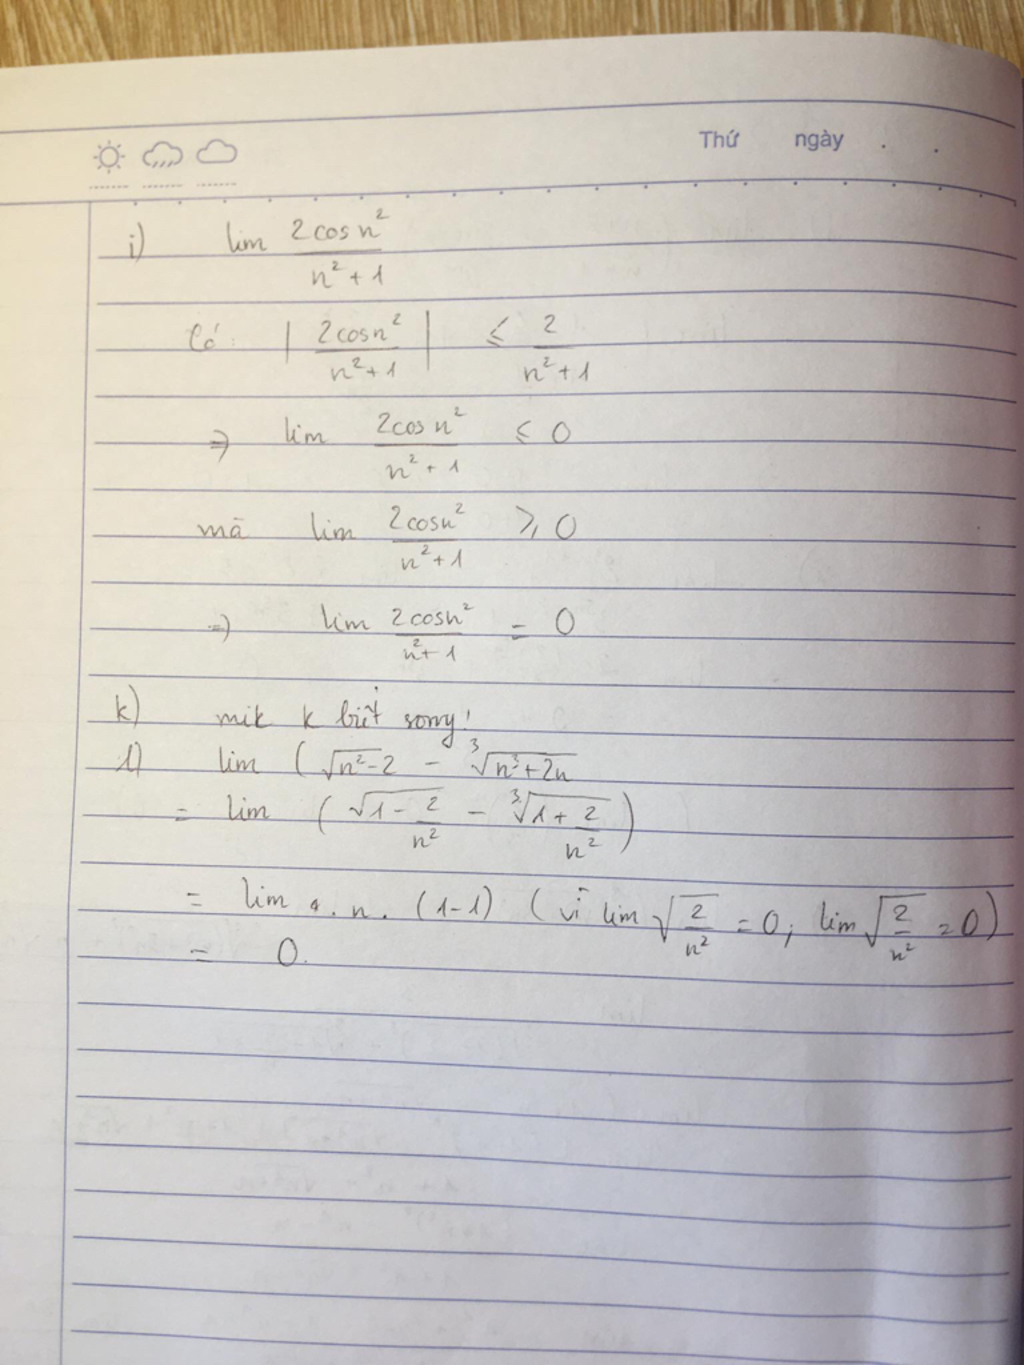 Thứ ngày . .
i) lim (2cos n²)/(n² + 1)
Có: |(2cosn²)/(n²+1)| ≤ 2/(n²+1)
⇒ lim (2cos n²)/(n²+1) ≤ 0
mà lim (2cosn²)/(n²+1) ≥ 0
⇒ lim (2cosn²)/(n²+1) = 0
k) mik k biết sorry!
l) lim (√n²-2 - ³√n³+2n
= lim (√(1 - 2/n²) - ³√(1 + 2/n²))
= lim n. (1-1) (vì lim √(2/n²) = 0; lim √(2/n²) = 0)
= 0.